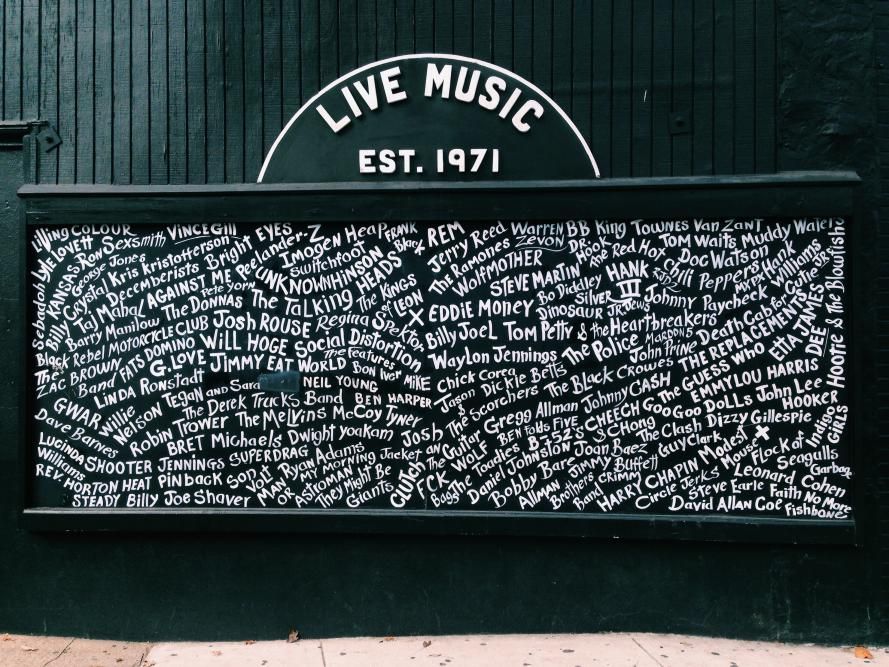 LIVE MUSIC
EST. 1971
LIVING COLOUR
VINCE GILL
Lyle Lovett
Ron Sexsmith
EYES
Bright
Peelander-Z
Imogen Heap
FRANK
Black
REM
Jerry Reed
Warren
ZEVON
BB King
TOWNES VAN ZANT
Sebadoh
KANSAS
George Jones
Kris Kristofferson
Switchfoot
The Ramones
DR. Hook
The Red Hot
Chili Peppers
TOM WAITS
MUDDY Waters
Billy Crystal
The Decemberists
AGAINST ME
UNKNOWNHINSON
WOLFMOTHER
Doc Watson
Hank
Williams
Taj Mahal
Pete Yorn
The Talking HEADS
STEVE MARTIN
HANK
III
Barry Manilow
The DONNAS
The Kings
of LEON
X
EDDIE MONEY
Bo Diddley
SILVER
JEWS
Johnny Paycheck
Cutie
Black Rebel MOTORCYCLE CLUB
Josh ROUSE
Regina Spektor
Billy Joel
Dinosaur Jr.
Tom Petty & the Heartbreakers
Death Cab for
ETTA JAMES
The
ZAC BROWN
Band
FATS DOMINO
WILL HOGE
Social Distortion
Waylon Jennings
The Police
MAROON 5
THE REPLACEMENTS
DEE
Hootie & the Blowfish
G.LOVE
JIMMY EAT WORLD
the features
Bon Iver
MIKE
Chick Corea
John Prine
The GUESS WHO
LINDA Ronstadt
Tegan and Sara
NEIL YOUNG
Jason
& The Scorchers
Dickie Betts
The Black Crowes
EMMYLOU HARRIS
GWAR
Willie
Nelson
The Derek Trucks Band
BEN HARPER
Johnny CASH
John Lee
HOOKER
Dave Barnes
Robin Trower
The Melvins
McCoy Tyner
Josh
Gregg Allman
CHEECH
& Chong
Goo Goo DOLLS
Dizzy Gillespie
Indigo
GIRLS
LUCINDA
Williams
BRET Michaels
Dwight Yoakam
Guitar
WOLF
BEN FOLDS FIVE
B-52'S
The Clash
SHOOTER JENNINGS
SUPERDRAG
Ryan Adams
The Toadies
Joan Baez
Guy Clark
Modest
Mouse
Flock of
Seagulls
REV. HORTON HEAT
PINBACK
Son
Volt
MY MORNING Jacket
Clutch
FCK
Daniel Johnston
JIMMY Buffett
HARRY CHAPIN
Garbage
STEADY
Billy Joe Shaver
MAN
OR
ASTROMAN
They Might Be
Giants
Bags
Bobby Bare
Allman
Brothers
Band
Circle Jerks
Leonard Cohen
Steve Earle
Faith No More
David Allan Coe
Fishbone